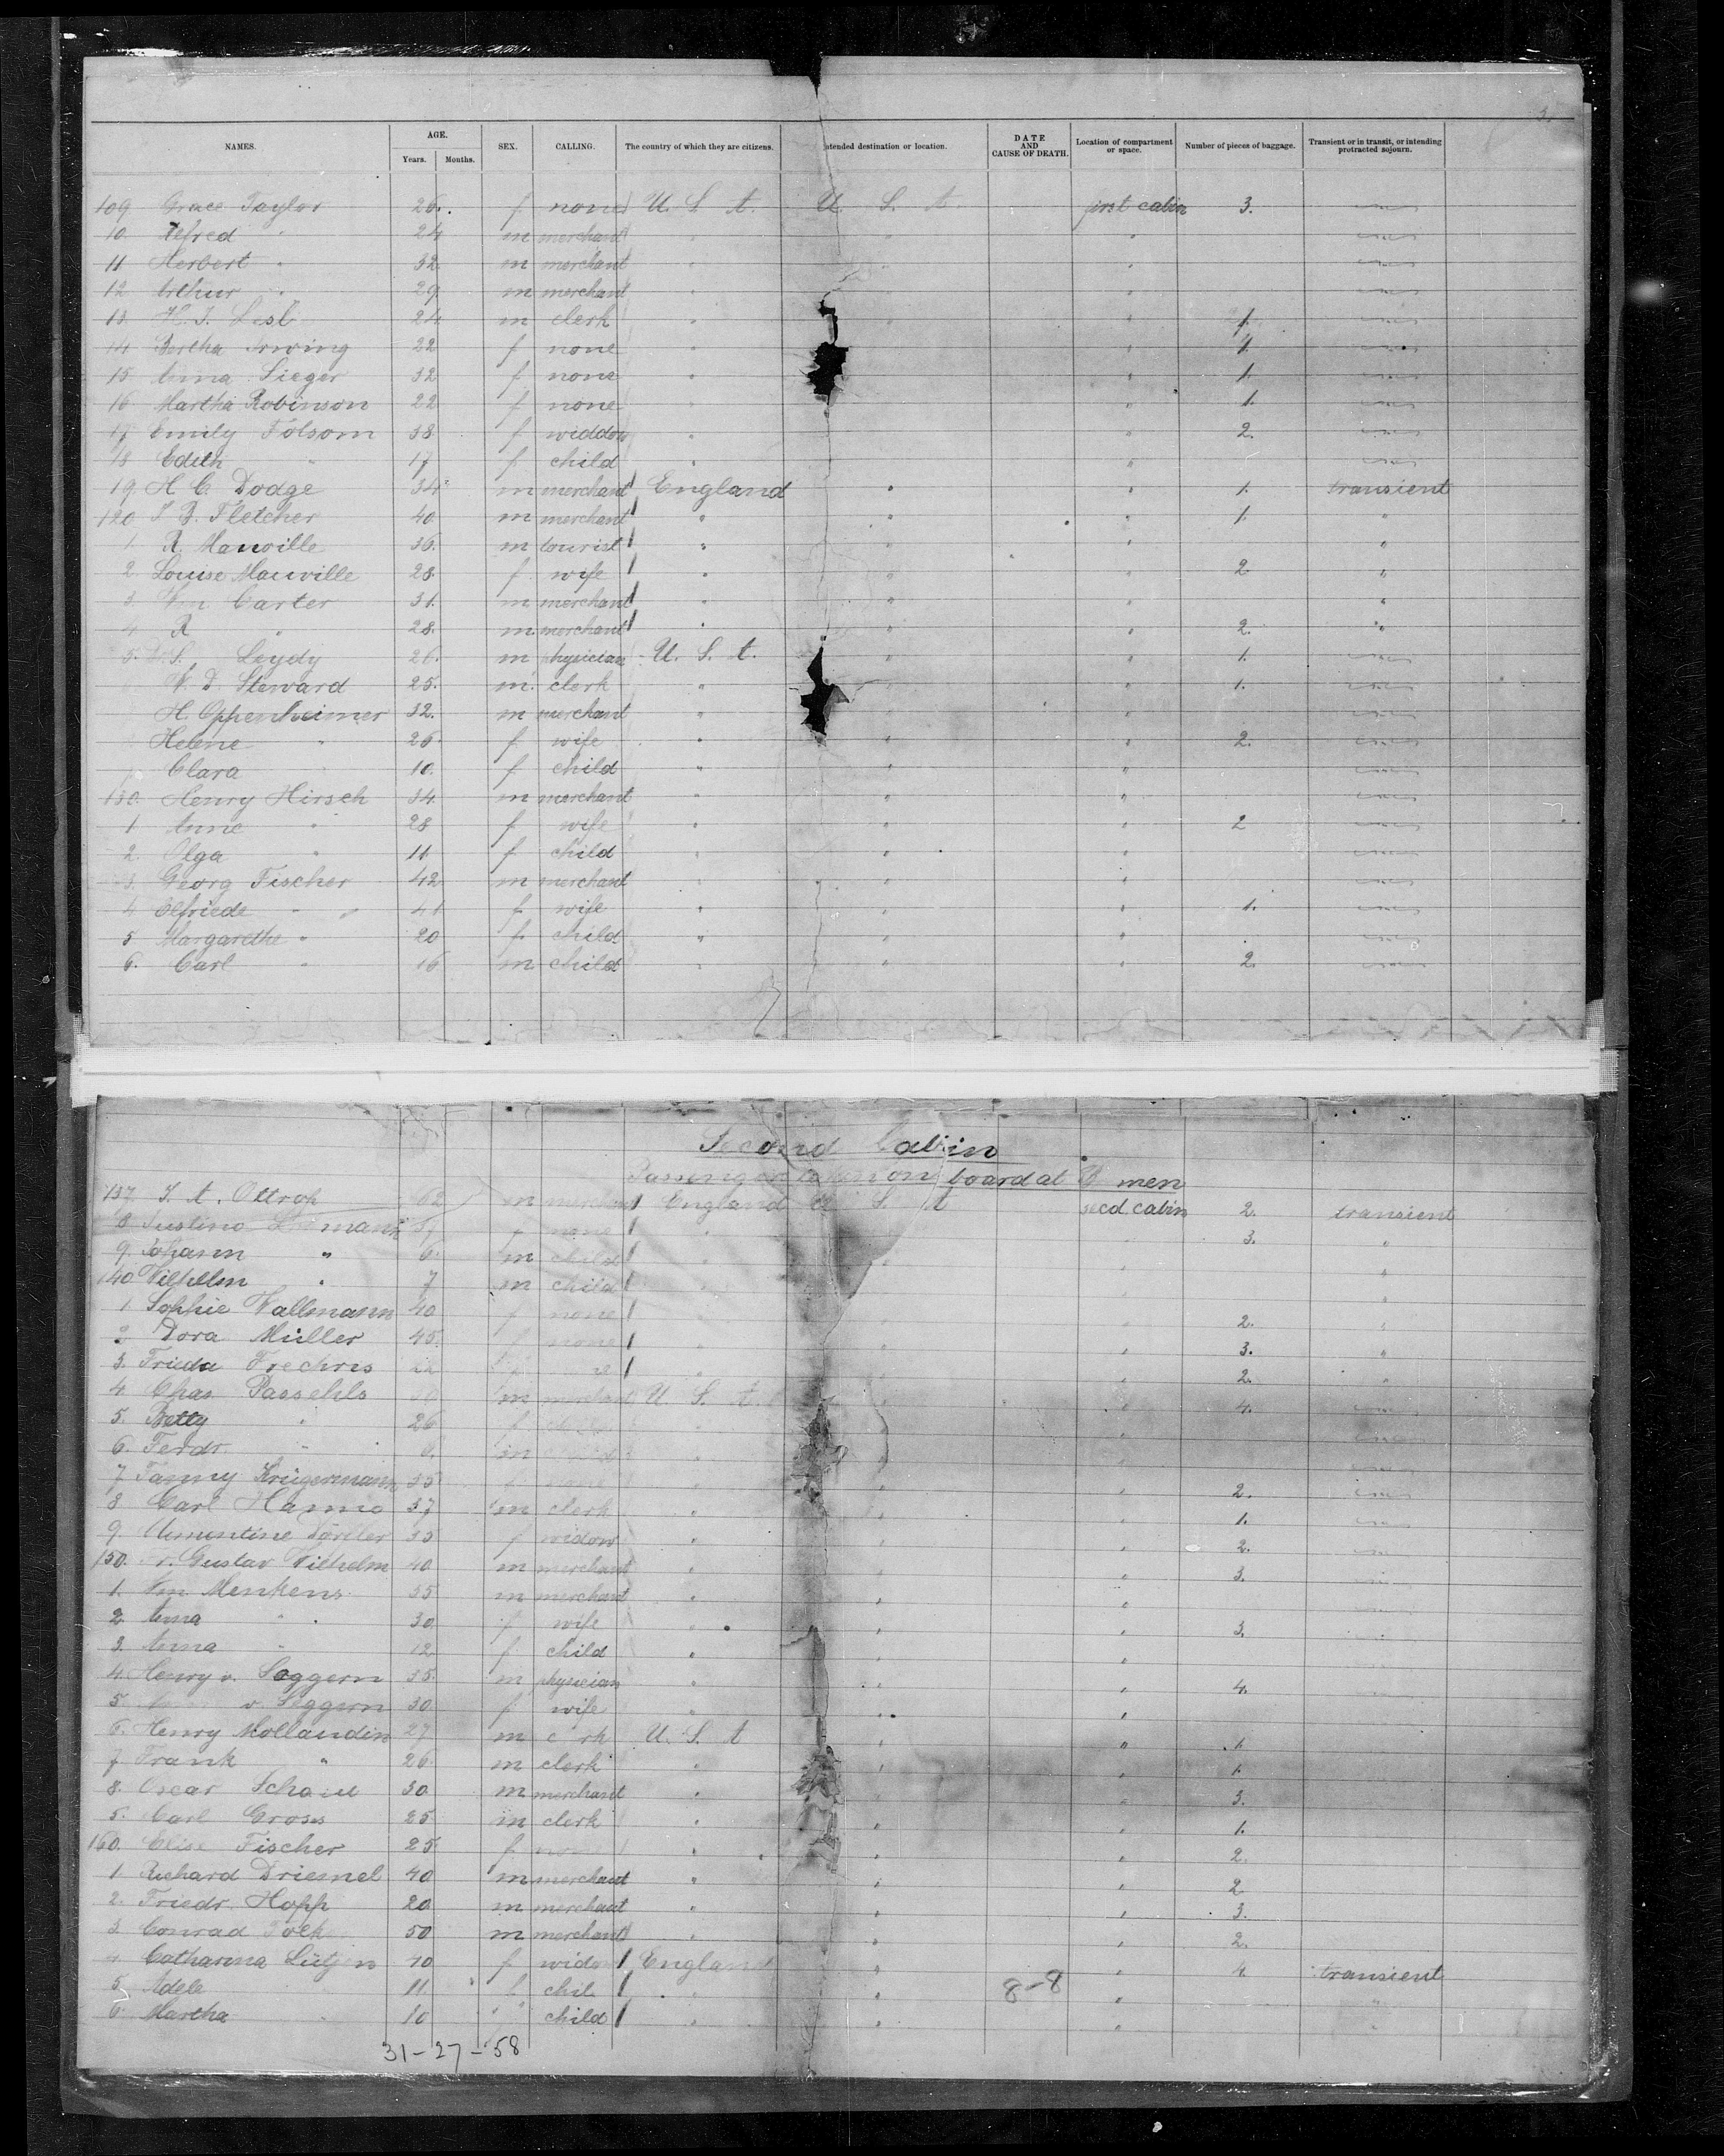 3.
NAMES. AGE. Years. Months. SEX. CALLING. The country of which they are citizens. Intended destination or location. DATE AND CAUSE OF DEATH. Location of compartment or space. Number of pieces of baggage. Transient or in transit, or intending protracted sojourn.
109 Grace Taylor 26. f none U. S. A. U. S. A first cabin 3.
10. Alfred " 24 m merchant " " "
11 Herbert " 32 m merchant " " "
12 Arthur " 29 m merchant " "
13. 24 m clerk " " " 1.
14 Bertha Irwing 22 f none " " 1.
15 Anna Sieger 32 f none " " 1.
16 Martha Robinson 22 f none " 1.
17 Emily Folsom 38 f widdow " " 2.
18 Edith " 17 f child " "
19. H. C. Dodge 34 m merchant England " " 1. transient
120. Fletcher 40. m merchant " " " 1. "
1. R. Manville 36. m tourist " " " "
2. Louise Manville 28. f wife " " " 2 "
3. Wm Carter 31. m merchant " " " "
4. R " 28. m merchant " " " 2. "
5. S. Leydy 26. m physician U. S. A. " " 1.
W. D. Steward 25. m. clerk " " " 1.
H. Oppenheimer 32. m merchant " "
Helene " 26. f wife " " " 2.
Clara " 10. f child " " "
130. Henry Hirsch 34 m merchant " " "
1 Anne " 28 f wife " " " 2
2. Olga " 11 f child " " "
3. Georg Fischer 42 m merchant " " "
4 Elfriede " 41 f wife " " " 1.
5 Margarethe " 20 f child " "
6. Carl " 16 m child " " " 2.
Second Cabin
Passenger taken on board at B men
137. Ottrop 62 m merchant England U. S. A secd. cabin 2. transient
8 mann f none " 3. "
9. Johann " 6. m child " " "
140 Wilhelm " 7 m child " "
1 Sophie Wallmann 40 f none " 2. "
2 Dora Müller 45. none " " 3. "
3. Frieda 22 " " 2. "
4. Chas Passehls m merchant U. S. A. " " 4.
5. Betty " 26 f "
6. Ferdr. " m " "
7 Fanny Krügermann 35 " " " 2.
8 Carl Hanno 37 m clerk " " " 1.
9. 33 f widow " " " 2.
150. Gustav Wilhelm 40 m merchant " " 3.
1. Wm Menkens 35 m merchant " " "
2. Anna " 30. f wife " " " 3.
3. Anna " 12 f child " " "
4. Henry v. Seggern 35. m physician " " " 4.
5. v. Seggern 30 f wife " " "
6. Henry Mollandin 27 m c rk U. S. A " " 1.
7. Frank " 26 m clerk " " " 1.
8. Oscar 30 m merchant " " " 3.
5. Carl Gross 25 m clerk " " " 1.
160. Elise Fischer 25. f " " " 2.
1 Richard Driemel 40 m merchant " " " 2
2. Friedr. Hopp 20 m merchant " " " 3.
3. Conrad 50 m merchant " " " 2.
4. Catharina Lütjen f widow England " " 4 transient
5. Adele 11. f chil " " " "
6. Martha " 10 " child " " " "
8-8
31-27-58